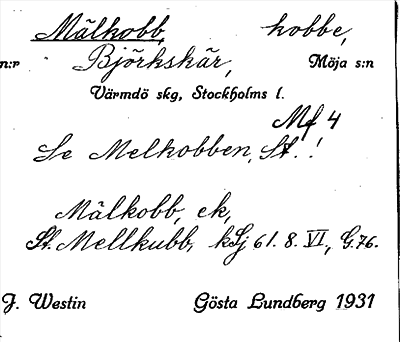 Mälkobb, kobbe,
n:r Björkskär, Möja s:n
Värmdö skg, Stockholms l.
Mf 4
Se Melkobben, St.!
Mälkobb, ek,
St. Mellkubb, kSj 61. 8. VI, G. 76.
J. Westin Gösta Lundberg 1931